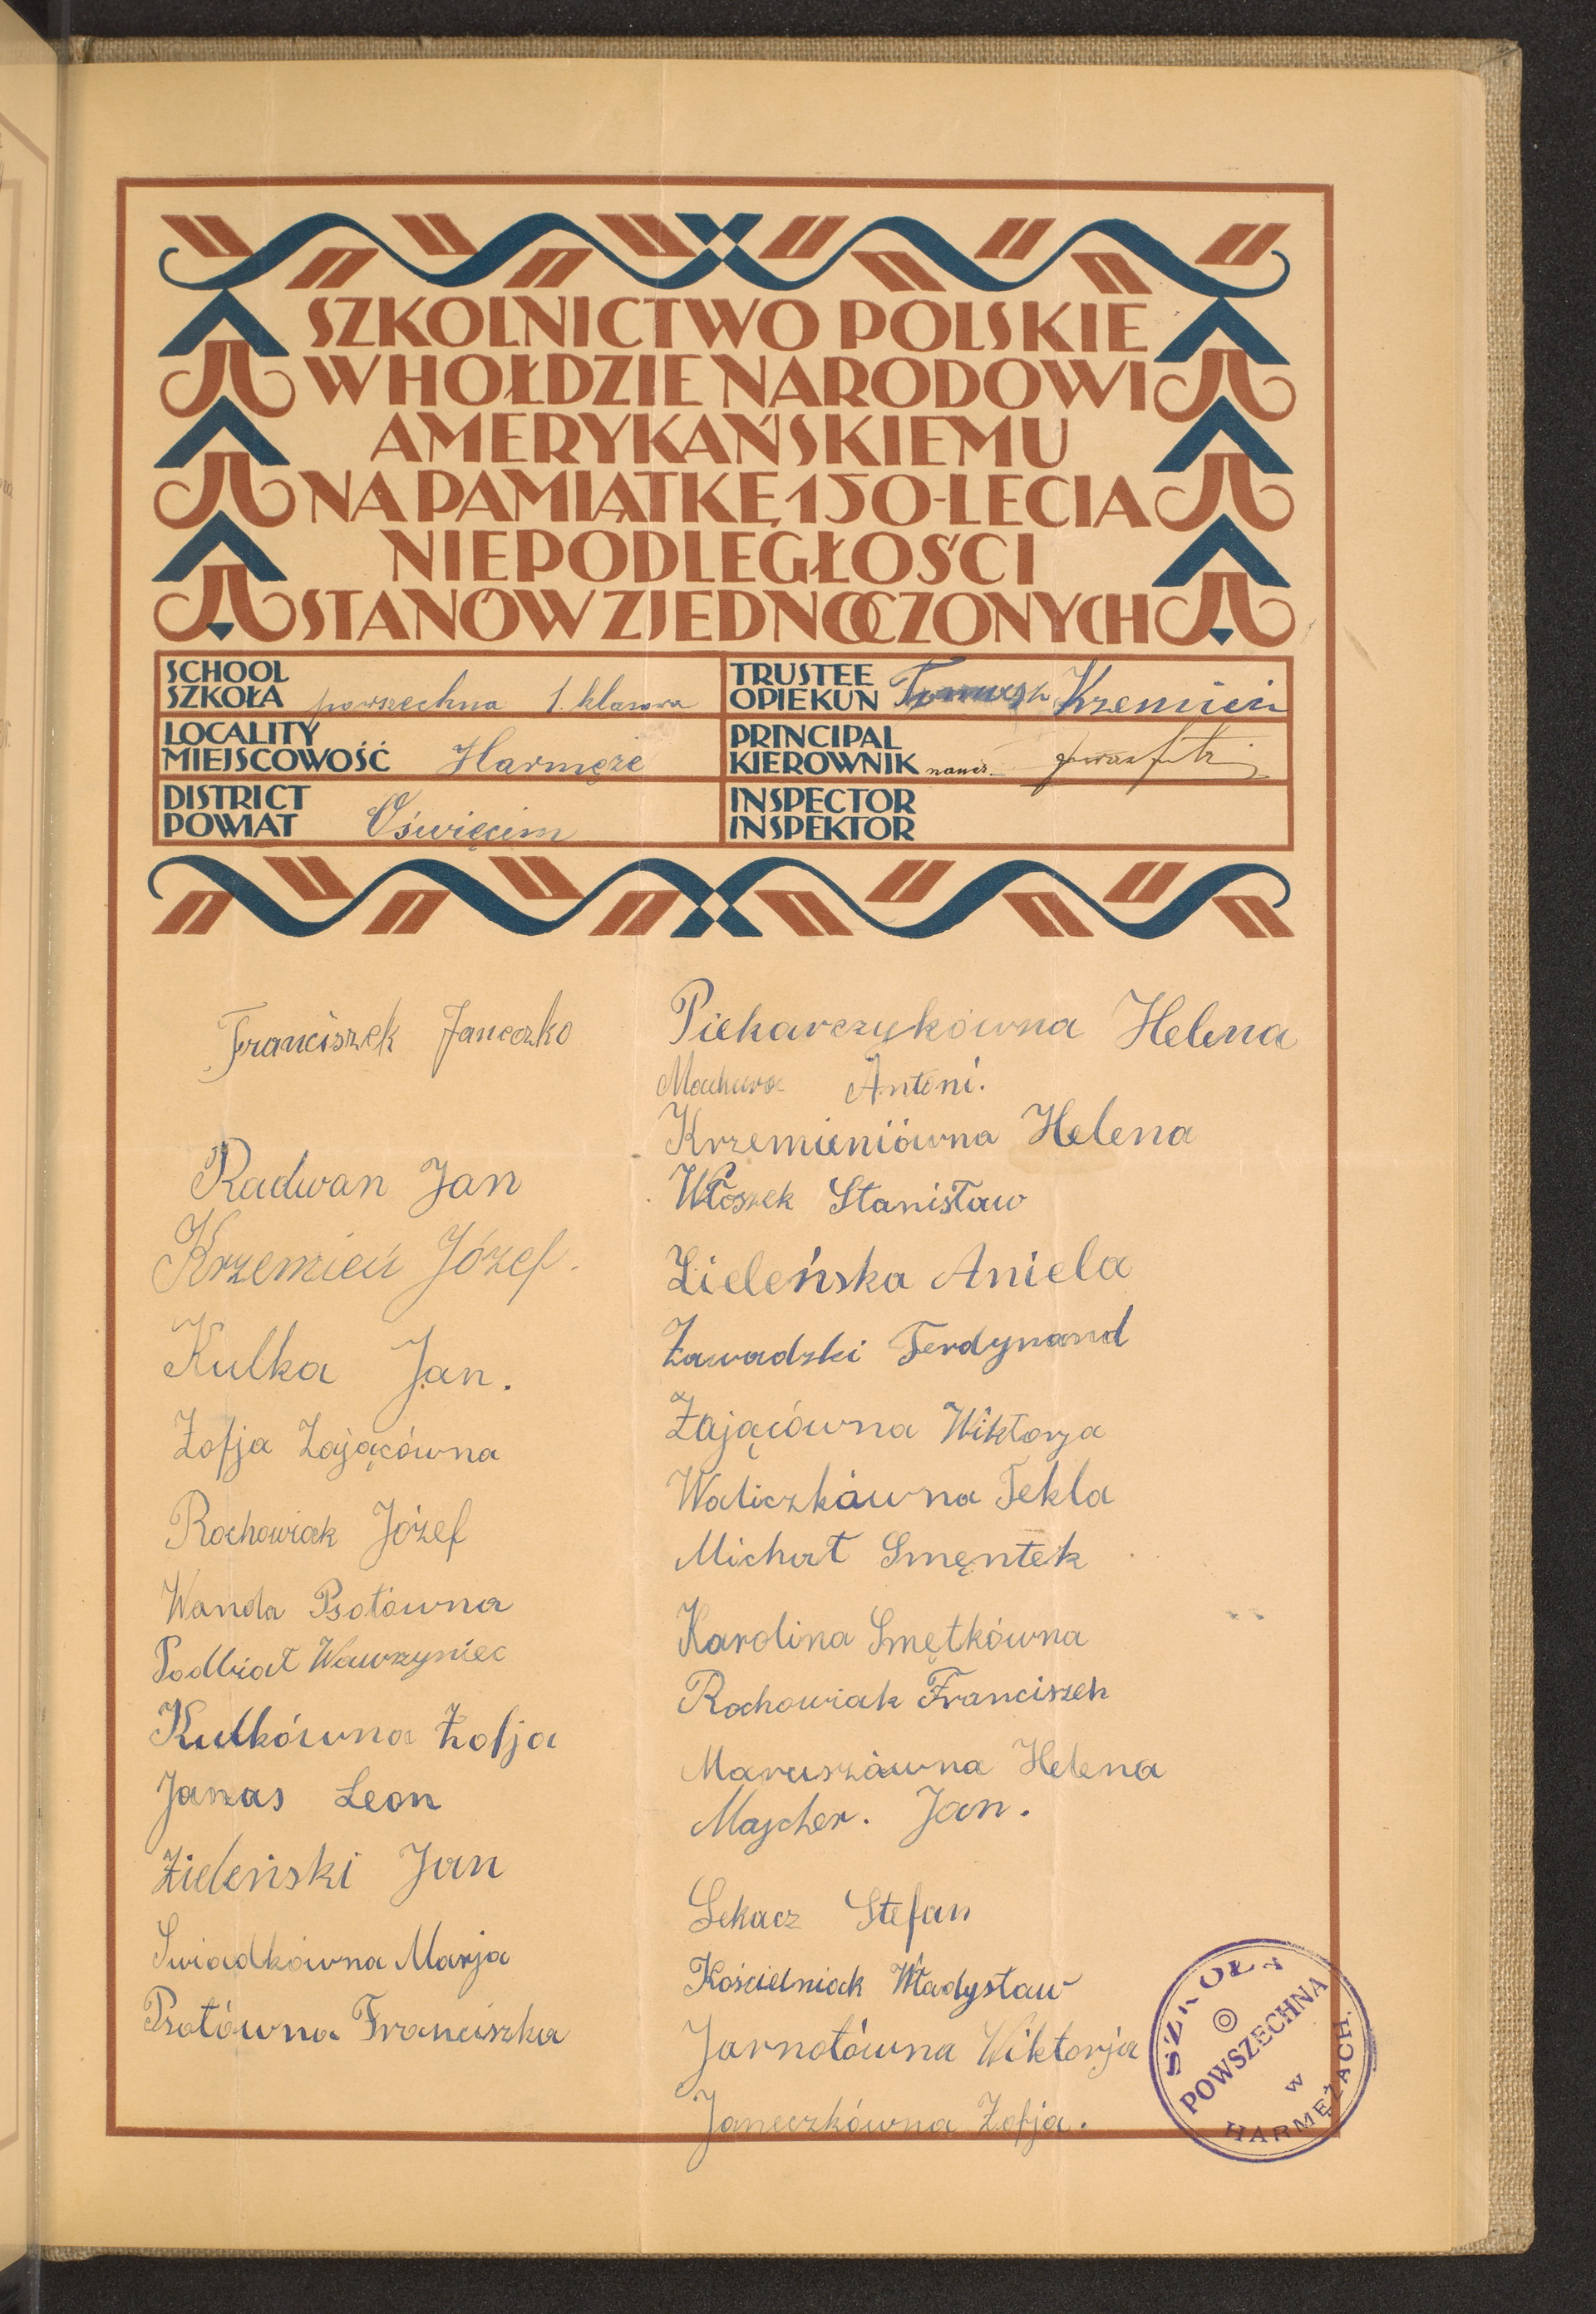 SZKOLNICTWO POLSKIE
W HOŁDZIE NARODOWI
AMERYKAŃSKIEMU
NA PAMIĄTKĘ 150-LECIA
NIEPODLEGŁOŚCI
STANÓW ZJEDNOCZONYCH
SCHOOL
SZKOŁA powszechna 1. klasowa
TRUSTEE
OPIEKUN Tomasz Krzemień
LOCALITY
MIEJSCOWOŚĆ Harmęże
PRINCIPAL
KIEROWNIK naucz.
DISTRICT
POWIAT Oświęcim
INSPECTOR
INSPEKTOR
Franciszek Janeczko
Radwan Jan
Krzemień Józef.
Kulka Jan.
Zofja Zającówna
Rochowiak Józef
Wanda Psotówna
Podbiał Wawrzyniec
Kulkówna Zofja
Janas Leon
Zieleński Jan
Swiadkówna Marja
Psotówna Franciszka
Piekarczykówna Helena
Machura Antoni.
Krzemieniówna Helena
Włoszek Stanisław
Zieleńska Aniela
Zawadzki Ferdynand
Zającówna Wiktorja
Waliczkówna Tekla
Michał Smęntek
Karolina Smętkówna
Rochowiak Franciszek
Maruszówna Helena
Majcher. Jan.
Sekacz Stefan
Kościelniak Władysław
Jarnotówna Wiktorja
Janeczkówna Zofja.
SZKOŁA
POWSZECHNA
w
HARMĘŻACH.